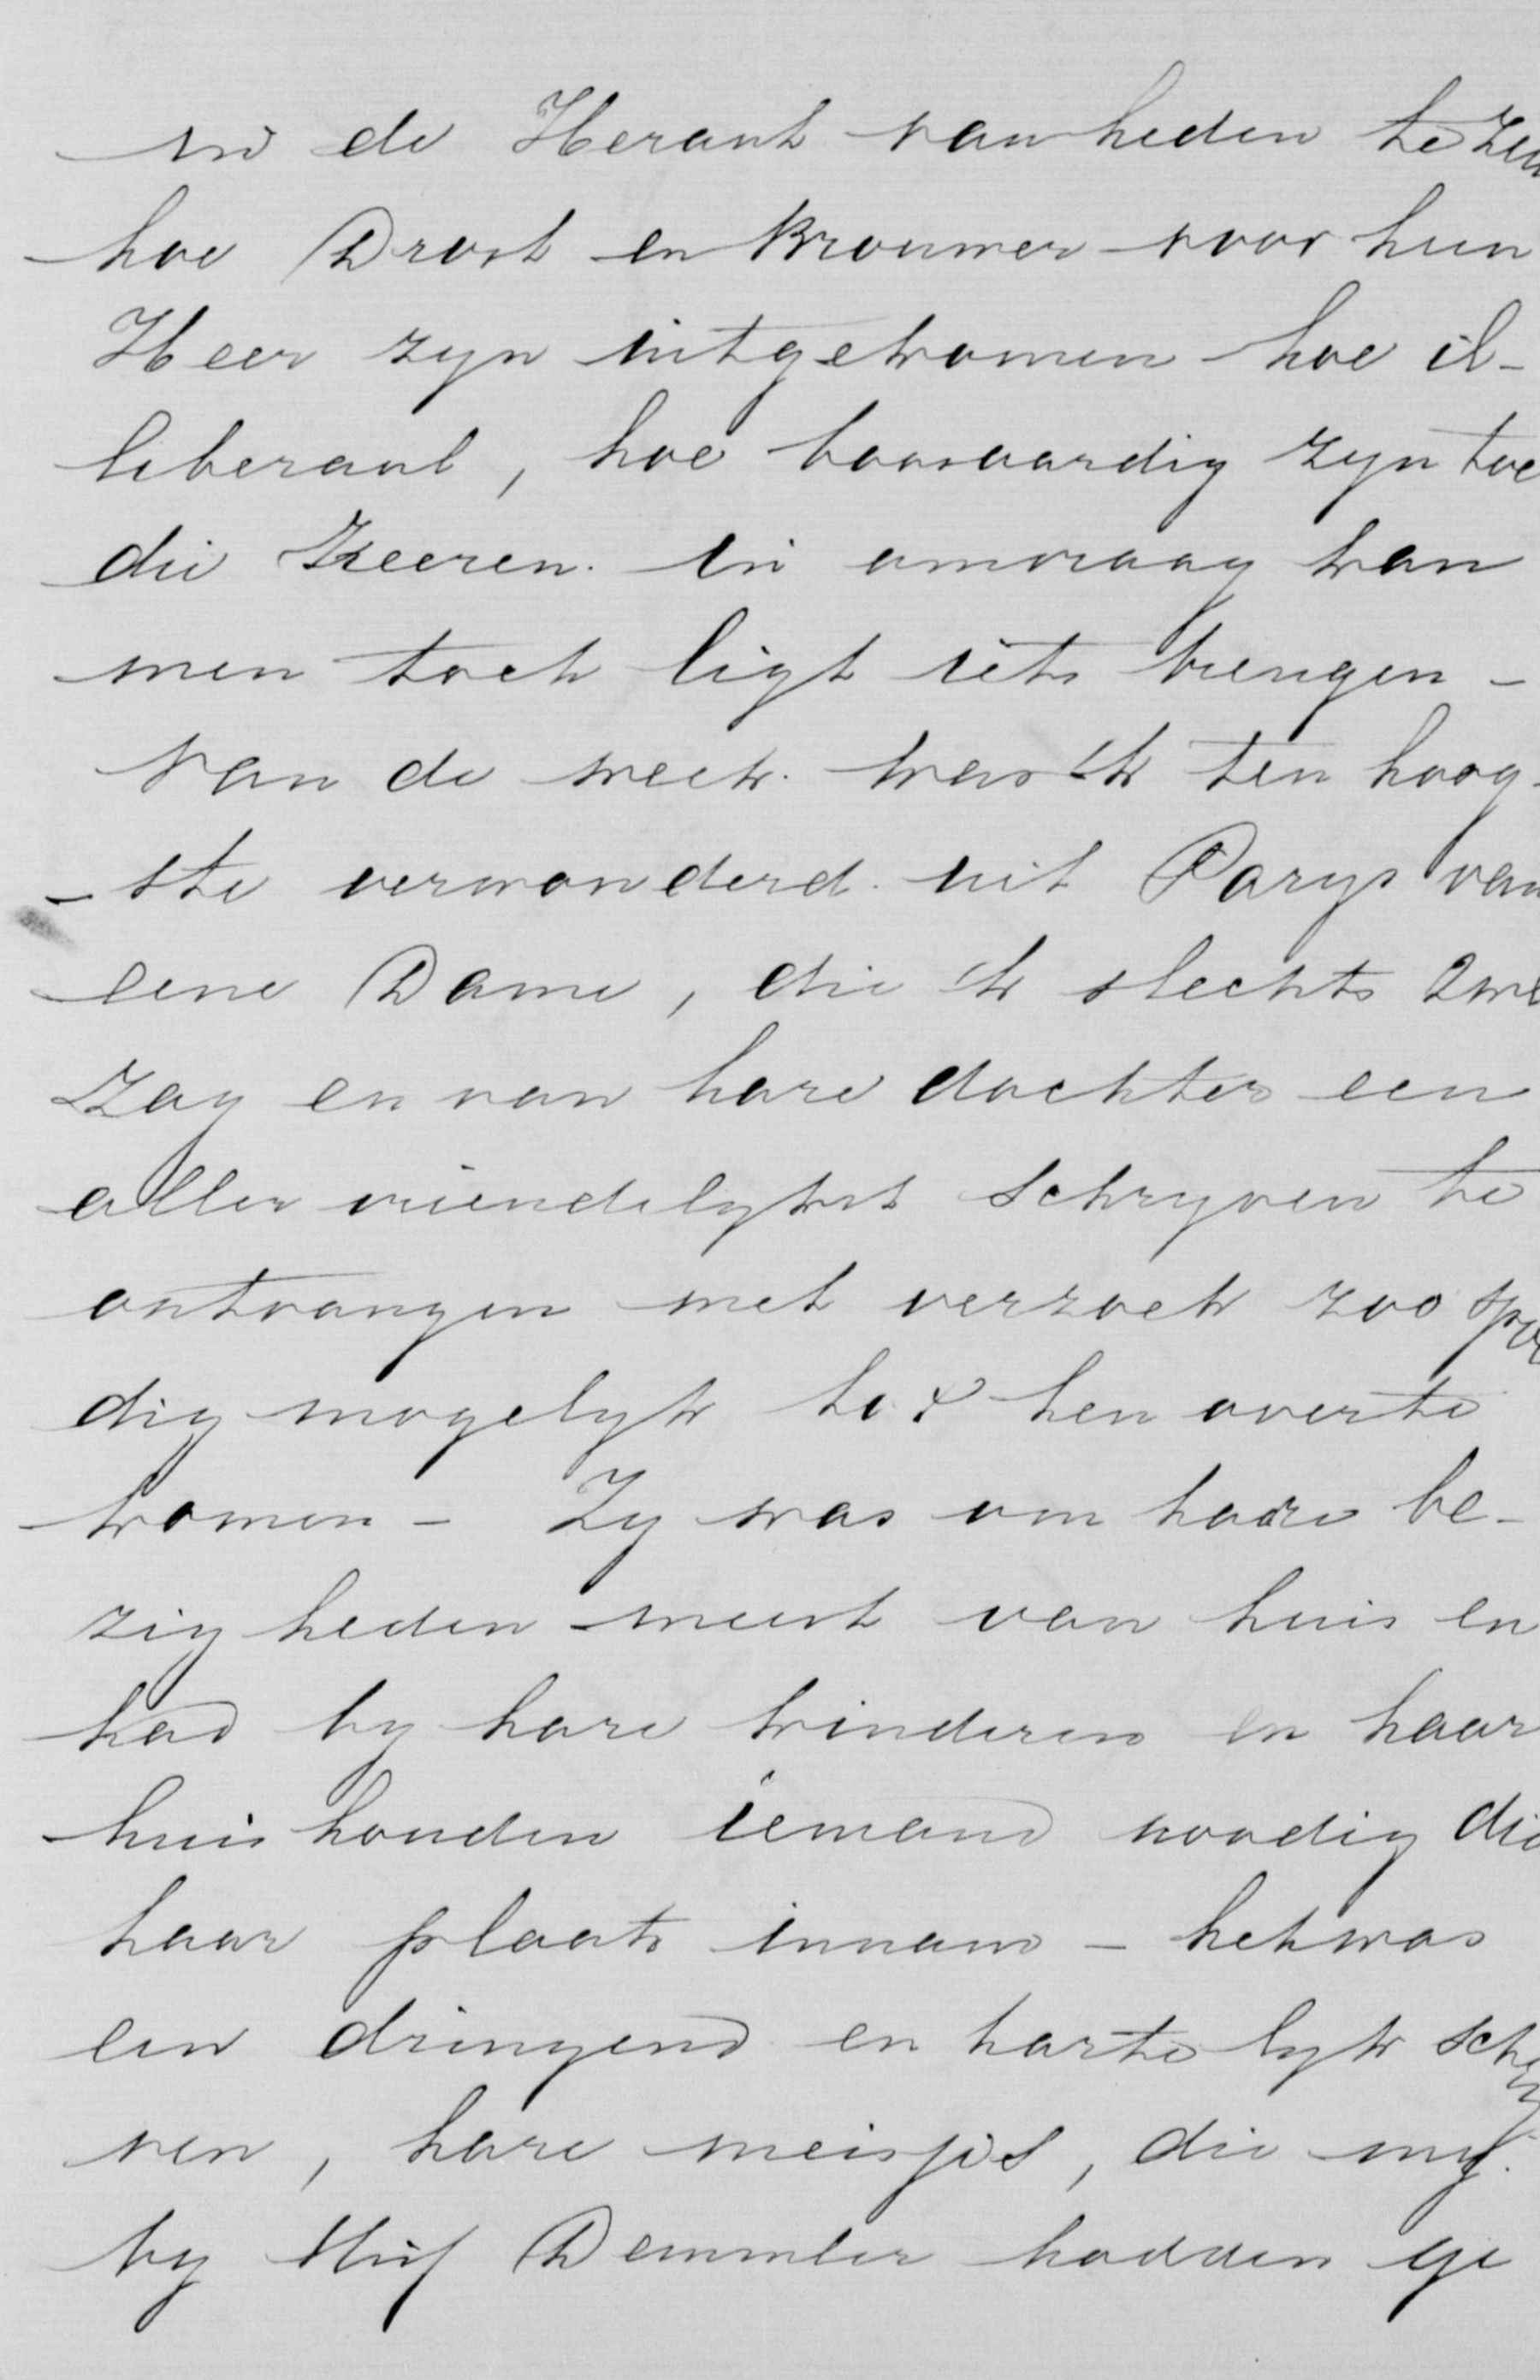 in de Heraut van heden te zien
hoe Drost en Brouwer voor hun
Heer zyn uitgekomen hoe il-
liberaal, hoe boosaardig zyn toe
die Heeren. in omvraag kan
men toch ligt iets brengen -
Van de week. was ik ten hoog-
- ste verwonderd. uit Parys van
eene Dame, die ik slechts 2 me
zag en van hare dochter een
aller vriendelykst schryven te
ontvangen met verzoek zoo spoe
dig mogelyk tot hen overte
komen - Zy was om hare be-
zigheden meest van huis en
had by hare kinderen en haar
huishouden iemand noodig die
haar plaats innam - het was
een dringend en hartelyk schry
ven, hare meisjes, die my.
by Demmler hadden ge